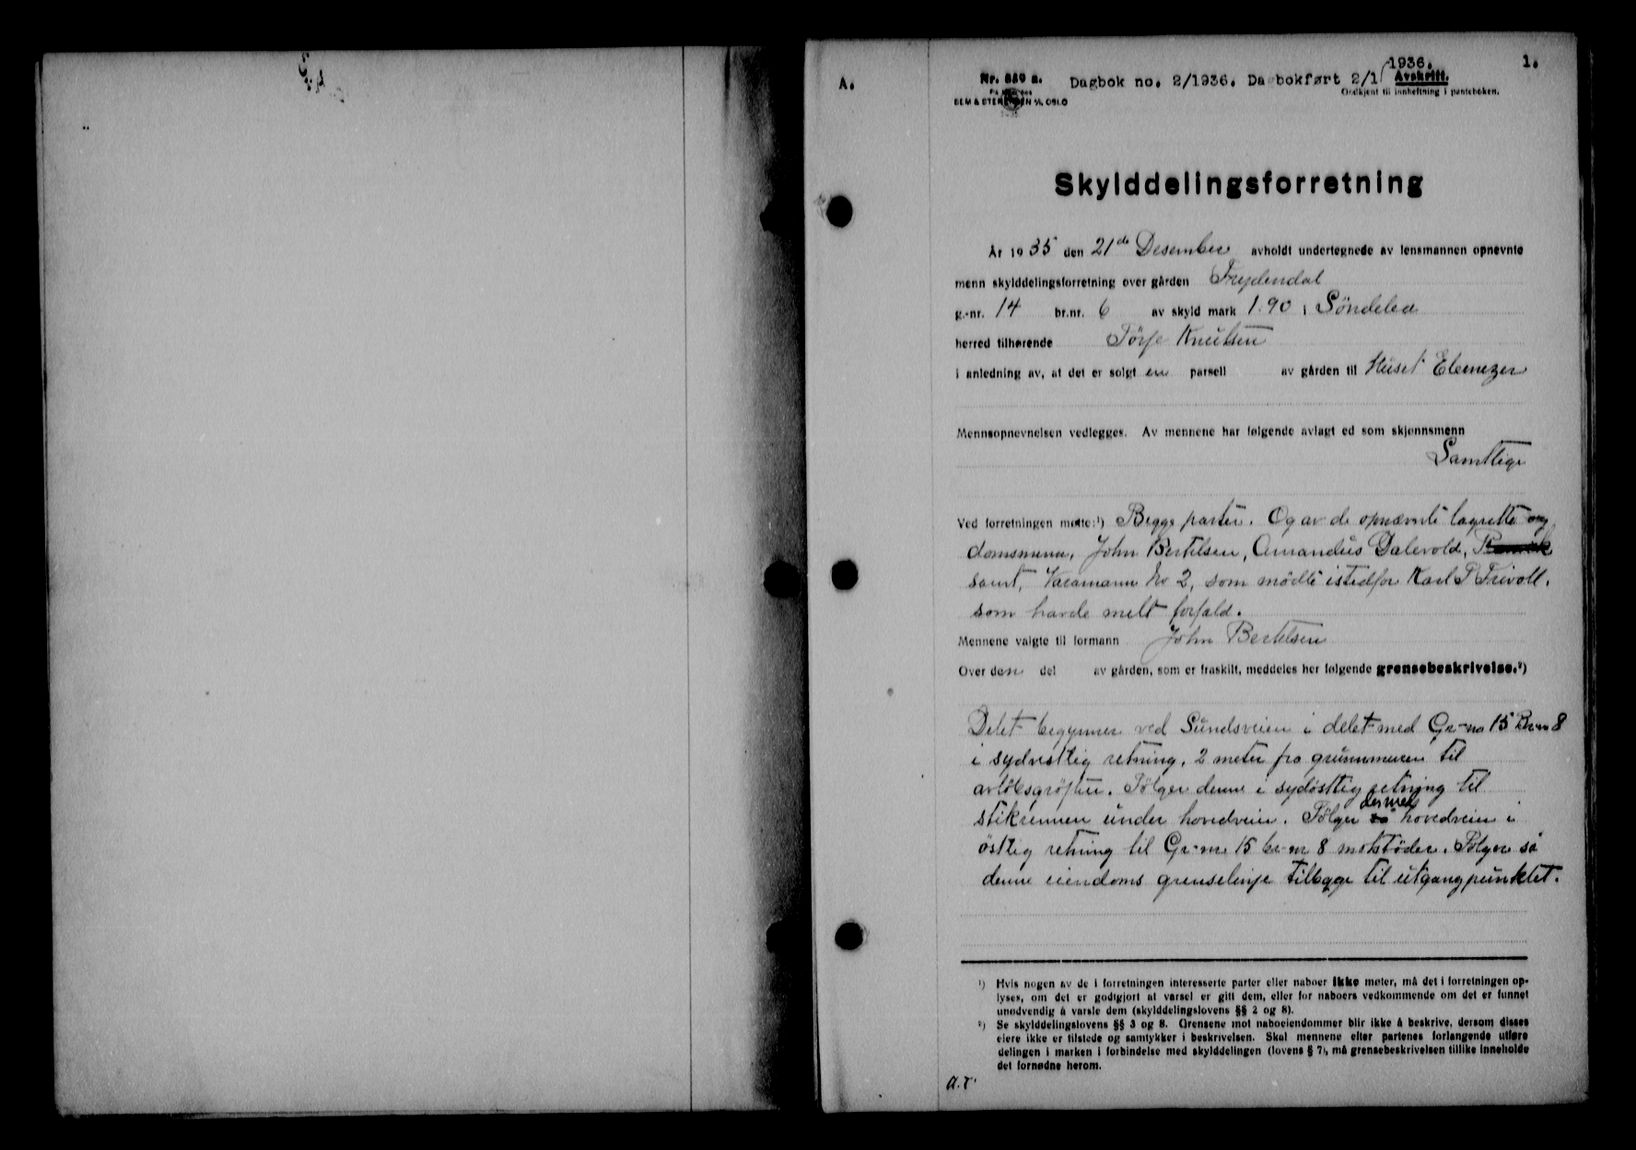 A.
Nr. 839 a.
Dagbok no. 2/1936. Da bokført 2/1
1936.
Avskrift.
Godkjent til innheftning i panteboken.
1.
SEM & STENERSEN A/S, OSLO
Skylddelingsforretning
År 1935 den 21de Desember avholdt undertegnede av lensmannen opnevnte
menn skylddelingsforretning over gården Frydendal
g.-nr. 14 br.nr. 6 av skyld mark 1.90 i Söndeled
herred tilhørende Törje Knutsen
i anledning av, at det er solgt en parsell av gården til Huset Ebenezer
Mennsopnevnelsen vedlegges. Av mennene har følgende avlagt ed som skjønnsmenn
Samtlige
Ved forretningen møtte:¹) Begge parter. Og av de opnævnte lagrette og
domsmenn, John Bertilsen, Amandus Dalevold,
samt, Varamann No 2, som mödte istedfor Karl P. Trivoll.
som havde meldt forfald.
Mennene valgte til formann John Bertelsen
Over den del av gården, som er fraskilt, meddeles her følgende grensebeskrivelse.²)
Delet begynner ved Sundsveien i delet med Gr-no 15 Br-no 8
i sydvestlig retning, 2 meter fra grunnmuren til
avlöbsgröften. Fölger denne i sydöstlig retning til
stikrennen under hovedveien. Fölger dermed hovedveien i
östlig retning til Gr-nr. 15 br-nr 8 motstöder. Fölger så
denne eiendoms grenselinje tilbage til utgangpunktet.
¹) Hvis nogen av de i forretningen interesserte parter eller naboer ikke møter, må det i forretningen op-
lyses, om det er godtgjort at varsel er gitt dem, eller for naboers vedkommende om det er funnet
unødvendig å varsle dem (skylddelingslovens §§ 2 og 8).
²) Se skylddelingslovens §§ 3 og 8. Grensene mot naboeiendommer blir ikke å beskrive, dersom disses
eiere ikke er tilstede og samtykker i beskrivelsen. Skal mennene efter partenes forlangende utføre
delingen i marken i forbindelse med skylddelingen (lovens § 7), må grensebeskrivelsen tillike inneholde
det fornødne herom.
a.r.